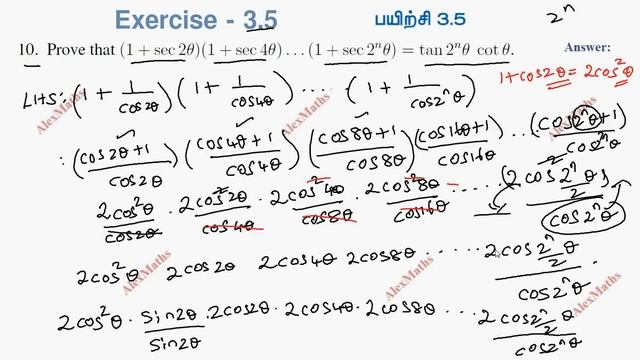 Exercise - 3.5 பயிற்சி 3.5 2ⁿ
10. Prove that (1 + sec 2θ)(1 + sec 4θ) . . . (1 + sec 2ⁿθ) = tan 2ⁿθ cot θ. Answer:
1+cos2θ = 2cos²θ
LHS: (1 + 1/cos2θ) (1 + 1/cos4θ) ... (1 + 1/cos2ⁿθ)
: (cos2θ+1 / cos2θ) (cos4θ+1 / cos4θ) (cos8θ+1 / cos8θ) (cos16θ+1 / cos16θ) ... (cos2ⁿθ+1 / cos2ⁿθ)
2cos²θ/cos2θ · 2cos²2θ/cos4θ · 2cos²4θ/cos8θ · 2cos²8θ/cos16θ ...... (2cos² 2ⁿ/2 θ) / cos2ⁿθ
2cos²θ 2cos2θ 2cos4θ 2cos8θ ...... 2cos 2ⁿ/2 θ / cos2ⁿθ
2cos²θ · sin2θ/sin2θ · 2cos2θ · 2cos4θ · 2cos8θ ...... 2cos 2ⁿ/2 θ / cos2ⁿθ
AlexMaths
AlexMaths
AlexMaths
AlexMaths
AlexMaths
AlexMaths